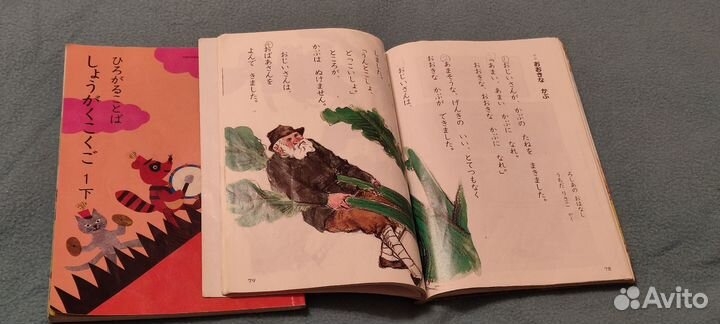 ひろがることば
しょうがくこくご
1下
おおきな かぶ
ろしあの おはなし
うちだ りさこ やく
おじいさんが、かぶの たねを まきました。
「あまい、あまい かぶに なれ。
おおきな、おおきな かぶに なれ。」
あまそうな、げんきの いい、とてつもなく
おおきな かぶが できました。
おじいさんは、
78
しました。
「うんとこしょ、
どっこいしょ。」
ところが、
かぶは ぬけません。
おじいさんは、
おばあさんを
よんで きました。
79
Avito